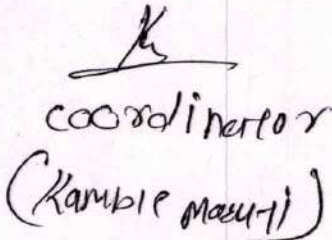 coordinator
(Kamble Maruti)